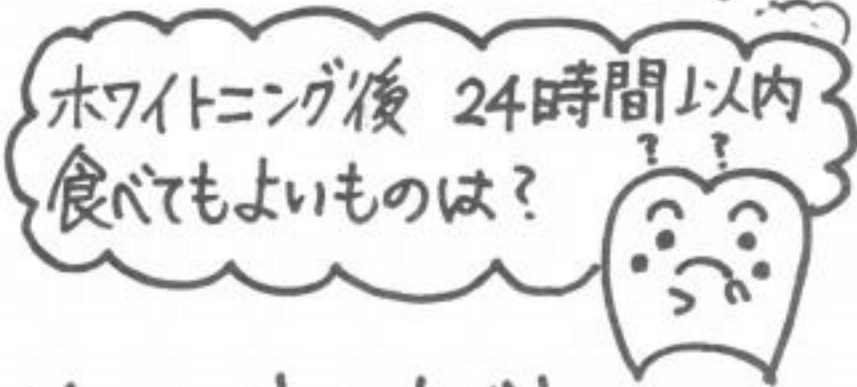 ホワイトニング後 24時間以内
食べてもよいものは?
? ?